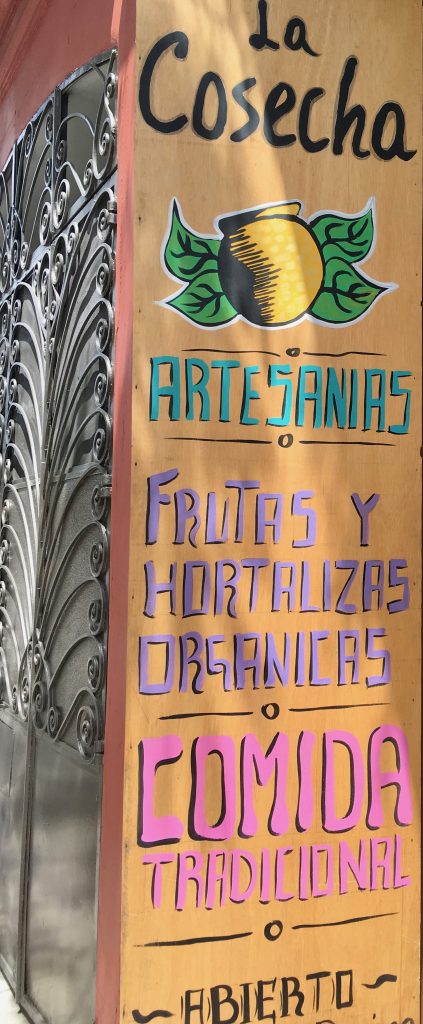 La
Cosecha
ARTESANIAS
FRUTAS Y
HORTALIZAS
ORGANICAS
COMIDA
TRADICIONAL
~ABIERTO~